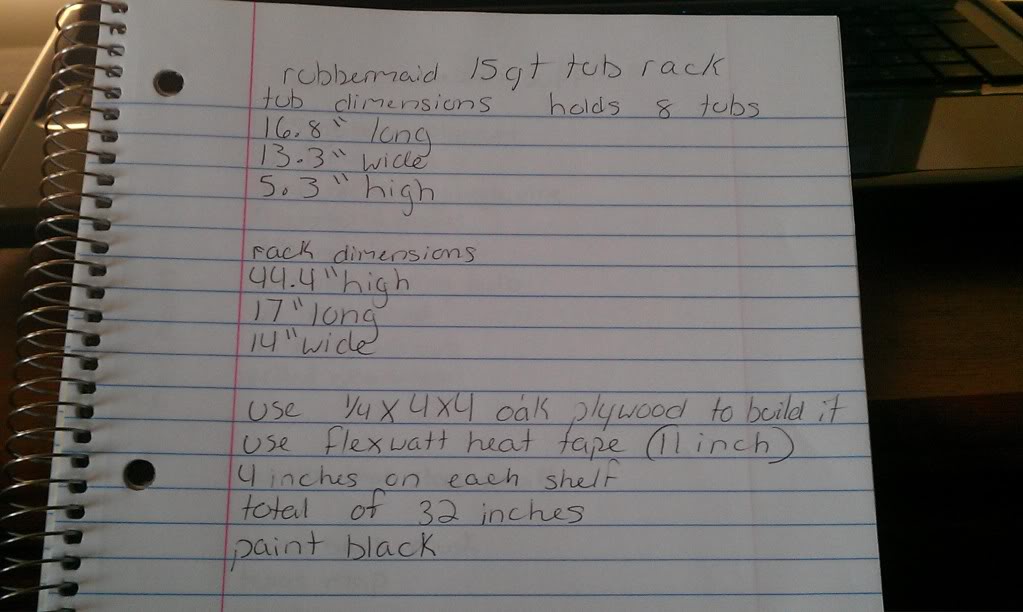 rubbermaid 15qt tub rack
tub dimensions holds 8 tubs
16.8" long
13.3" wide
5.3" high
rack dimensions
44.4" high
17" long
14" wide
use 1/4 x 4x4 oak plywood to build it
use flexwatt heat tape (11 inch)
4 inches on each shelf
total of 32 inches
paint black